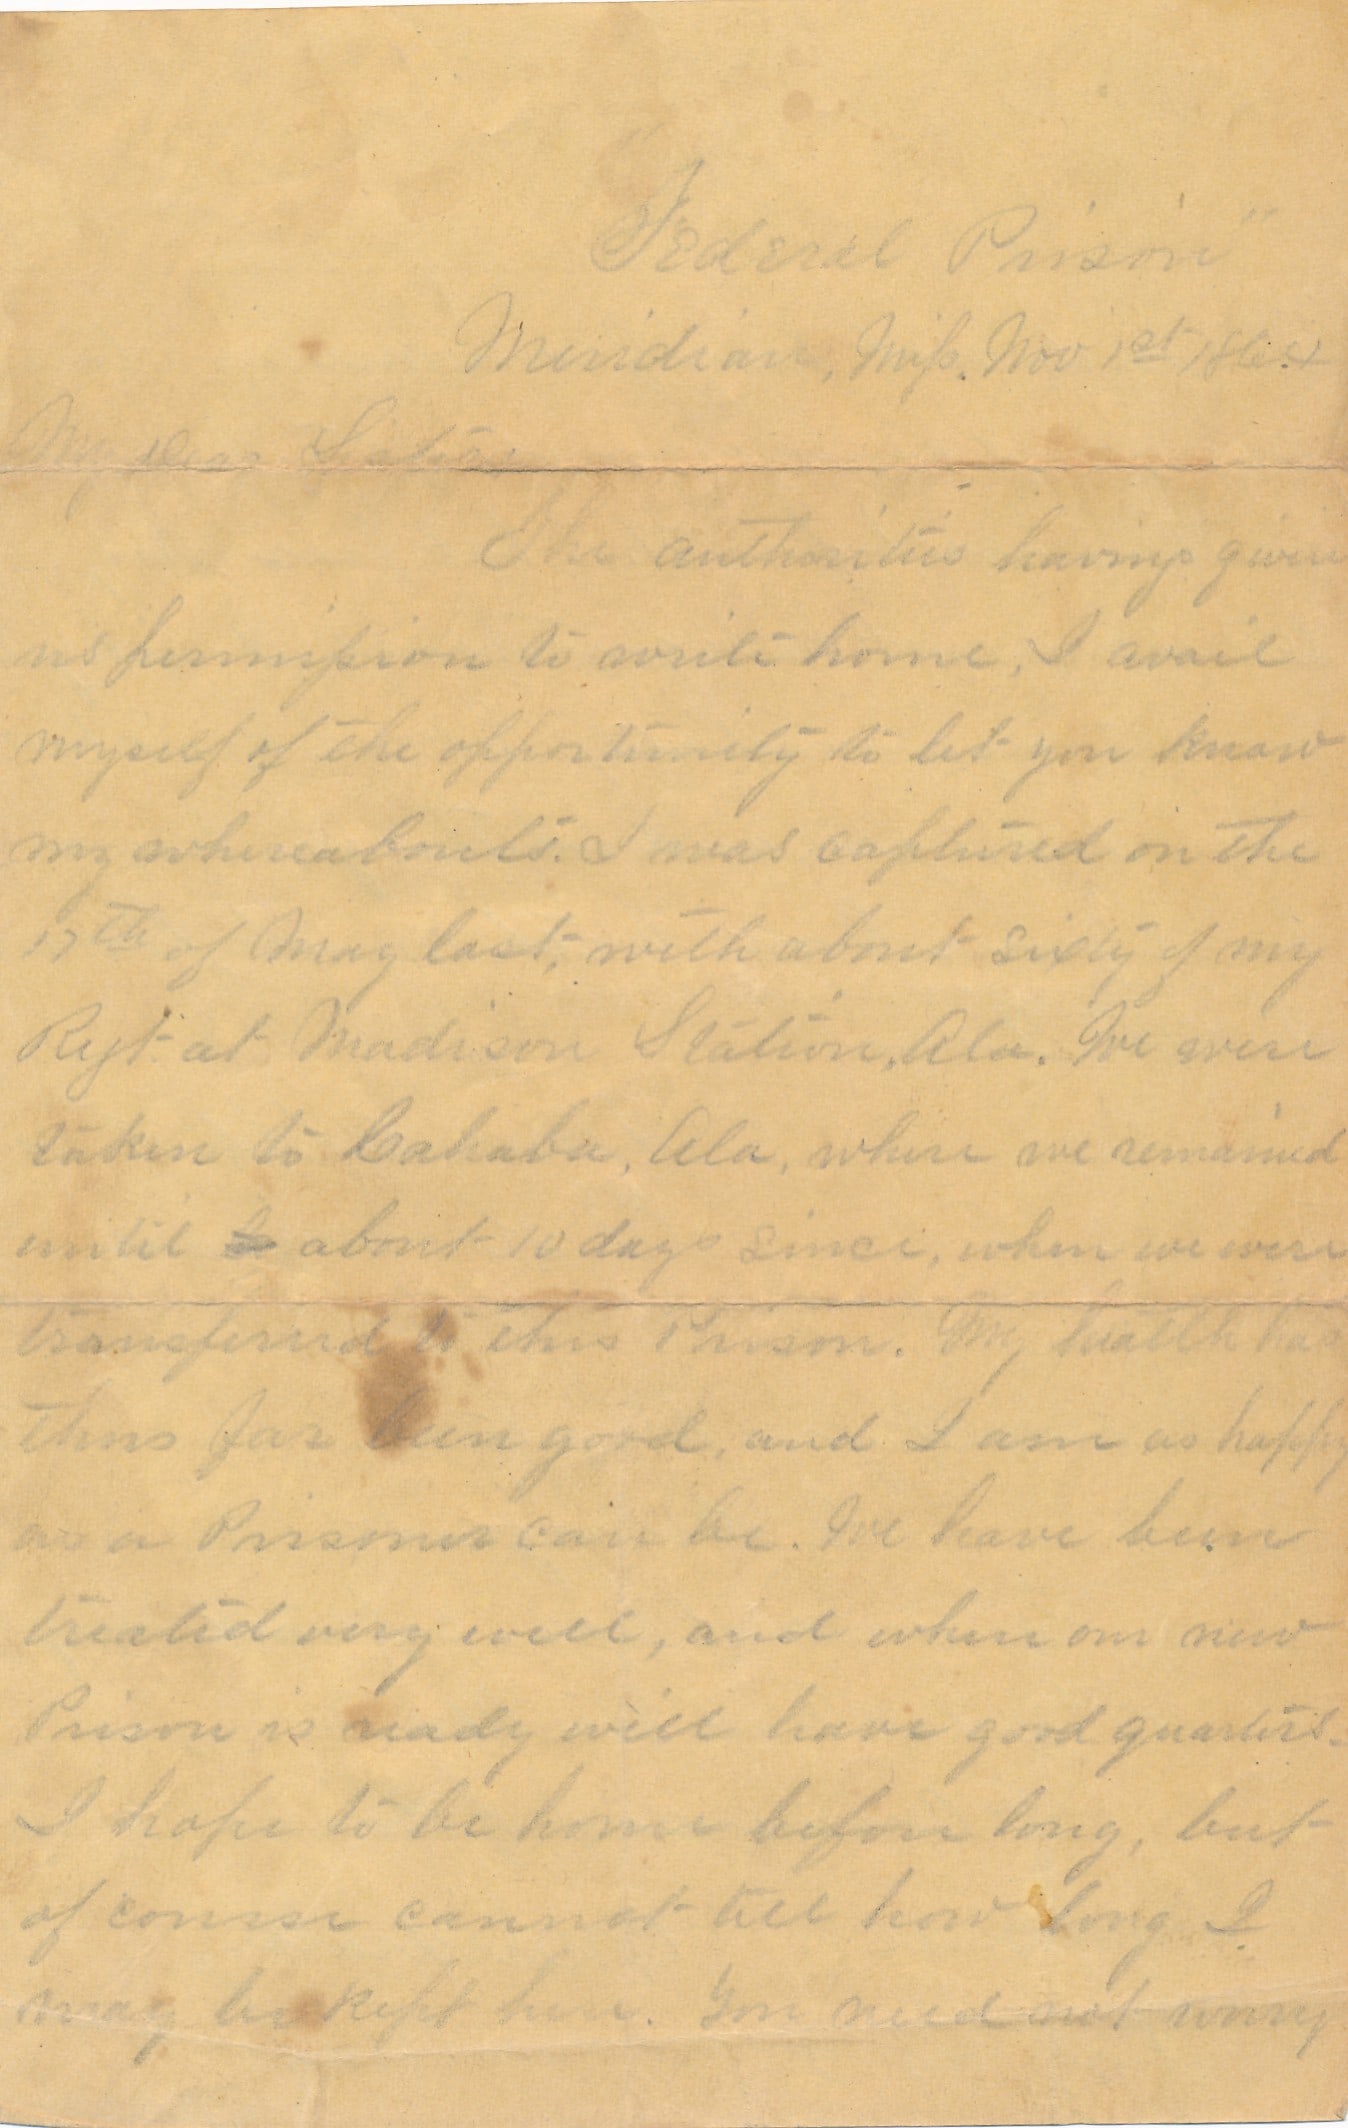 "Federal Prison"
Meridian, Miss. Nov 1st 1864
My Dear
The authorities having given
us permission to write home, I avail
myself of the opportunity to let you know
my whereabouts. I was captured on the
17th of May last, with about sixty of my
Regt at Madison Station, Ala. We were
taken to Cahaba, Ala, where we remained
until about 10 days since, when we were
transferred to this Prison. My health has
thus far been good, and I am as happy
as a Prisoner can be. We have been
treated very well, and when our new
Prison is ready will have good quarters.
I hope to be home before long, but
of course cannot tell how long I
may be kept here. You need not worry